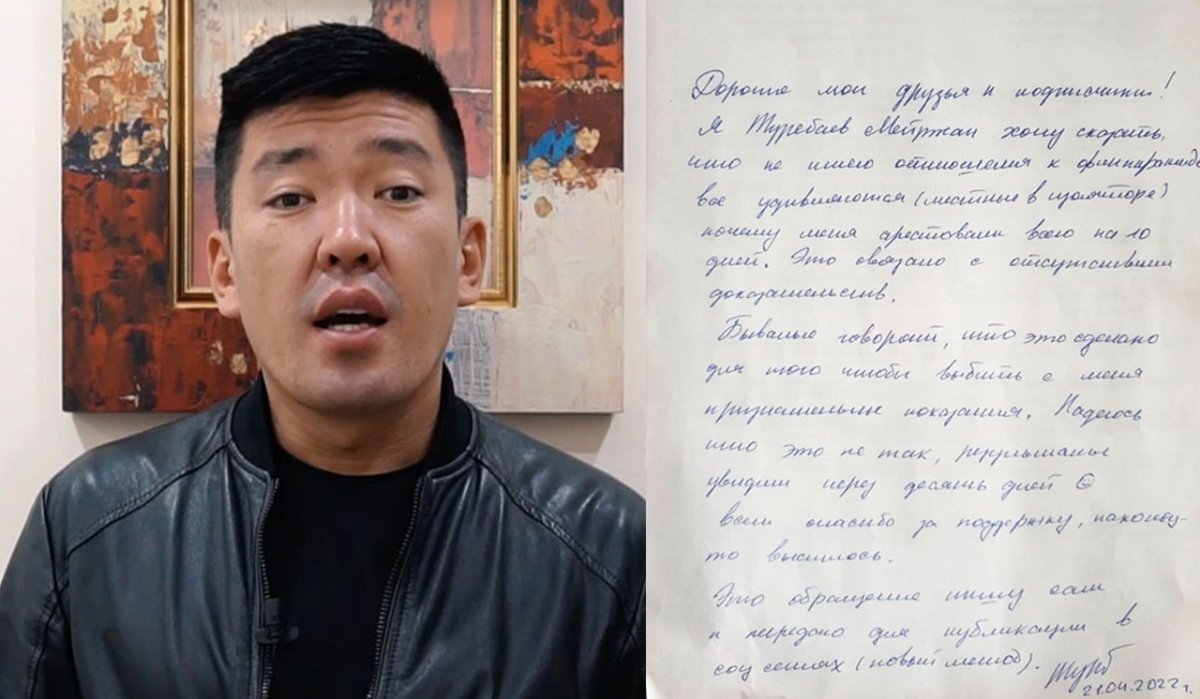 Дорогие мои друзья и подписчики!
Я Туребаев Мейржан хочу сказать,
что не имею отношения к финпирамиде
все удивляются (местные в изоляторе)
почему меня арестовали всего на 10
дней. Это связано с отсутствием
доказательств.
Бывалые говорят, что это сделано
для того чтобы выбить с меня
признательные показания. Надеюсь
что это не так, результаты
увидим через десять дней ☺
всем спасибо за поддержку, наконец-
то выспюсь.
Это обращение пишу сам
и передано для публикации в
соц сетях (новый метод).
21.04.2022г.